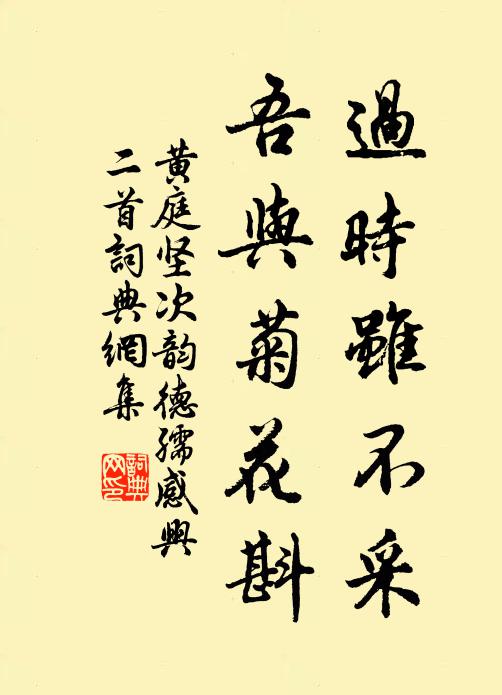 過時雖不采
吾與菊花斟
黄庭坚次韵德孺感興
二首詞典網集
詞典
网印